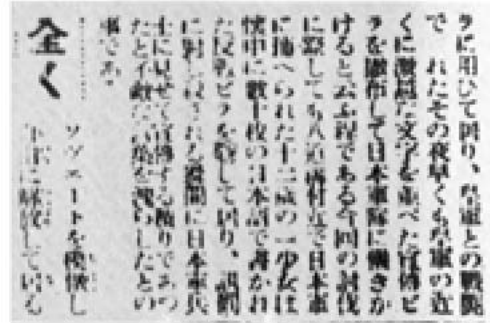 ラに用ひて囘り、皇軍との戰鬪
で れたその夜早くも皇軍の近
くに激越な文字を並べた宣傳ビ
ラを撒布して日本軍隊に働きか
けると云ふ程である今囘の討伐
に際しても八道 村近で日本軍
に捕へられた十二歲の一少女は
懷中に數十枚の日本語で書かれ
た反 ビラを して囘り、
に され 間に日本軍兵
士に見せて宣傳する積りであつ
たと不敵な を洩らしたとの
事である
全く
ソヴエートを模 し
に解放して居る